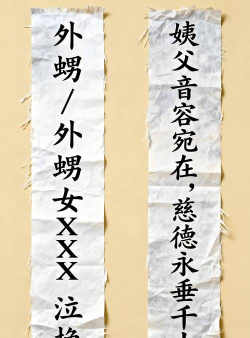 姨父音容宛在，慈德永垂千
外甥/外甥女XXX 泣